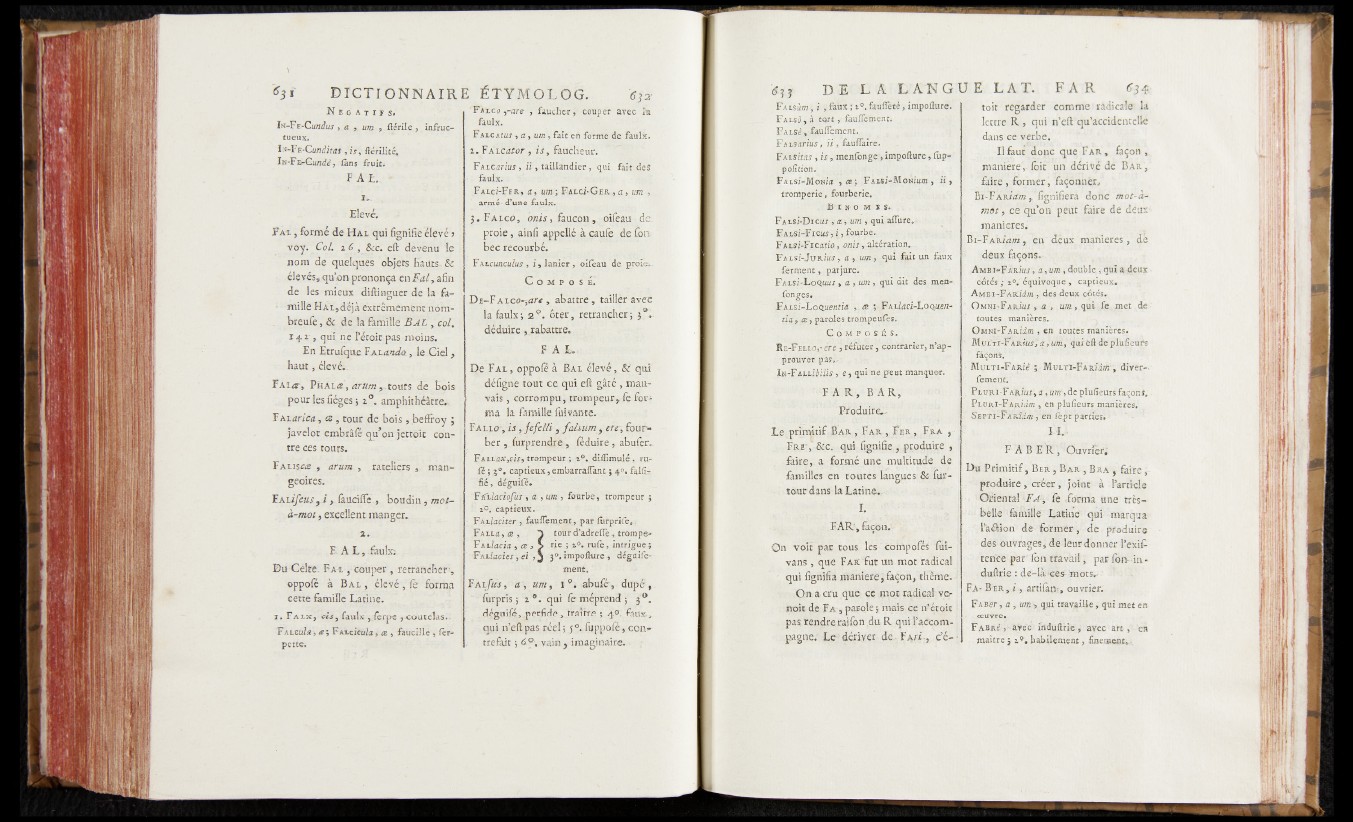 631 DICTIONNAIRE ÉTYMOLOG. 632
NEGATIFS.
IN-FE-Cundus, a, um, ſtérile, infruc-
tueux.
IN-FE-Cunditas, is, ſtérilité.
IN-FE-Cundè, ſans fruit.
FAL.
1.
Elevé.
FAL, formé de HAL qui ſignifie élevé,
voy. Col. 26, &c. eſt devenu le
nom de quelques objets hauts &
élevés, qu'on prononça en Fal, afin
de les mieux diſtinguer de la fa-
mille HAL, déjà extrêmement nom-
breuſe, & de la famille BAL, col.
142, qui ne l'étoit pas moins.
En Etruſque FALando, le Ciel,
haut, élevé.
FALæ, PHALæ, arum, tours de bois
pour les ſiéges; 2°. amphithéâtre.
FALarica, æ, tour de bois, beffroy;
javelot embrâſé qu'on jettoit con-
tre ces tours.
FALiscæ, arum, rateliers, man-
geoires.
FALiſcus, i, ſauciſſe, boudin, mot-
à-mot, excellent manger.
2.
FAL, faulx.
Du Celte FAL, couper, retrancher,
oppoſé à BAL, élevé, ſe forma
cette famille Latine.
1. FALX, cis, faulx, ſerpe, coutelas.
FALcula, æ; FALcicula, æ, faucille, ſer-
pette.
FALCO, -are, faucher, couper avec la
faulx.
FALCatus, a, um, fait en forme de faulx.
2. FALCator, is, faucheur.
FALCarius, ii, taillandier, qui fait des
faulx.
FALCi-FER, a, um; FALCi-GER, a, um,
armé d'une faulx.
3. FALCO, onis, faucon, oiſeau de
proie, ainſi appellé à cauſe de ſon
bec recourbé.
FALCunculus, i, lanier, oiſeau de proie.
COMPOSÉ.
DE-FALCO-, are, abattre, tailler avec
la faulx; 2°. ôter, retrancher; 3°.
déduire, rabattre.
FAL.
De FAL, oppoſé à BAL élevé, & qui
déſigne tout ce qui eſt gâté, mau-
vais, corrompu, trompeur, ſe for-
ma la famille ſuivante.
FALLO, is, fefelli, falsum, ere, four-
ber, ſurprendre, ſéduire, abuſer.
FALLax, cis, trompeur; 2°. diſſimulé, ru-
ſé; 3°. captieux, embarraſſant; 4°. falſi-
fié, déguiſé.
FALlacioſus, a, um, fourbe, trompeur;
2°. captieux.
FALlaciter, fauſſement, par ſurpriſe.
FALLa, æ, tour d'adreſſe, trompe-
FALlacia, æ, rie; 2°. ruſe, intrigue;
FALlacies, ei, 3°. impoſture, déguiſe-
ment.
FALſus, a, um, 1°. abuſé, dupé,
ſurpris; 2°. qui ſe méprend; 3°.
déguiſé, perfide, traître; 4°. faux,
qui n'eſt pas réel; 5°. ſuppoſé, con-
trefait; 6°. vain, imaginaire.
633 DE LA LANGUE LAT. FAR 634
FALsùm, i, faux; 2°. fauſſeté, impoſture.
FALsò, à tort, fauſſement.
FALsè, fauſſement.
FALsarius, ii, fauſſaire.
FALsitas, is, menſonge, impoſture, ſup-
poſition.
FALsi-MONia, æ; FALsi-MONium, ii,
tromperie, fourberie.
BINOMES.
FALsi-DIcus, a, um, qui aſſure.
FALsi-FIcus, i, fourbe.
FALsi-FIcatio, onis, altération.
FALsi-JURius, a, um, qui fait un faux
ferment, parjure.
FALsi-LOQuus, a, um, qui dit des men-
ſonges.
FALsi-LOQuentia, æ; FALlaci-LOQuen-
tia, æ, paroles trompeuſes.
COMPOSÉS.
RE-FELLO, -ere, réfuter, contrarier, n'ap-
prouver pas.
IN-FALLibilis, e, qui ne peut manquer.
FAR, BAR,
Produire.
Le primitif BAR, FAR, FER, FRA,
FRE, &c. qui ſignifie, produire,
faire, a formé une multitude de
familles en toutes langues & ſur-
tout dans la Latine.
I.
FAR, façon.
On voit par tous les compoſés ſui-
vans, que FAR fut un mot radical
qui ſignifia maniere, façon, thême.
On a cru que ce mot radical ve-
noit de FA, parole; mais ce n'étoit
pas rendre raiſon du R qui l'accom-
pagne. Le dériver de FARi, c'é-
toit regarder comme radicale la
lettre R, qui n'eſt qu'accidentelle
dans ce verbe.
Il faut donc que FAR, façon,
maniere, ſoit un dérivé de BAR,
faire, former, façonner.
BI-FARiàm, ſignifiera donc mot-à-
mot, ce qu'on peut faire de deux
manieres.
BI-FARiam, en deux manieres, de
deux façons.
AMBI-FARius, a, um, double, qui a deux
côtés; 2°. équivoque, captieux.
AMBI-FARiàm, des deux côtés.
OMNI-FARius, a, um, qui ſe met de
toutes manières.
OMNI-FARiàm, en toutes manières.
MULTI-FARius, a, um, qui eſt de pluſieurs
façons.
MULTI-FARiè; MULTI-FARiàm, diver-
ſement.
PLURI-FARius, a, um, de pluſieurs façons.
PLURI-FARiàm, en pluſieurs manières.
SEPTI-FARiàm, en ſept parties.
II.
FABER, Ouvrier.
Du Primitif, BER, BAR, BRA, faire,
produire, créer, joint à l'article
Oriental FA, ſe forma une très-
belle famille Latine qui marqua
l'action de former, de produire
des ouvrages, de leur donner l'exiſ-
tence par ſon travail, par ſon in-
duſtrie: de-là ces mots.
FA-BER, i, artiſan, ouvrier.
FABer, a, um, qui travaille, qui met en
œuvre.
FABRè, avec induſtrie, avec art, en
maître; 2°. habilement, finement.